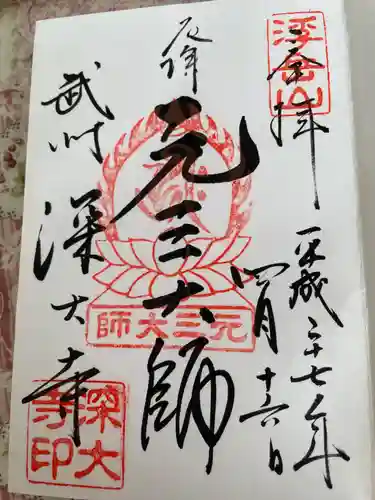 浮岳山
奉拝
平成二十七年
四月十六日
厄除
元三大師
元三大師
武州
深大寺
深大寺印